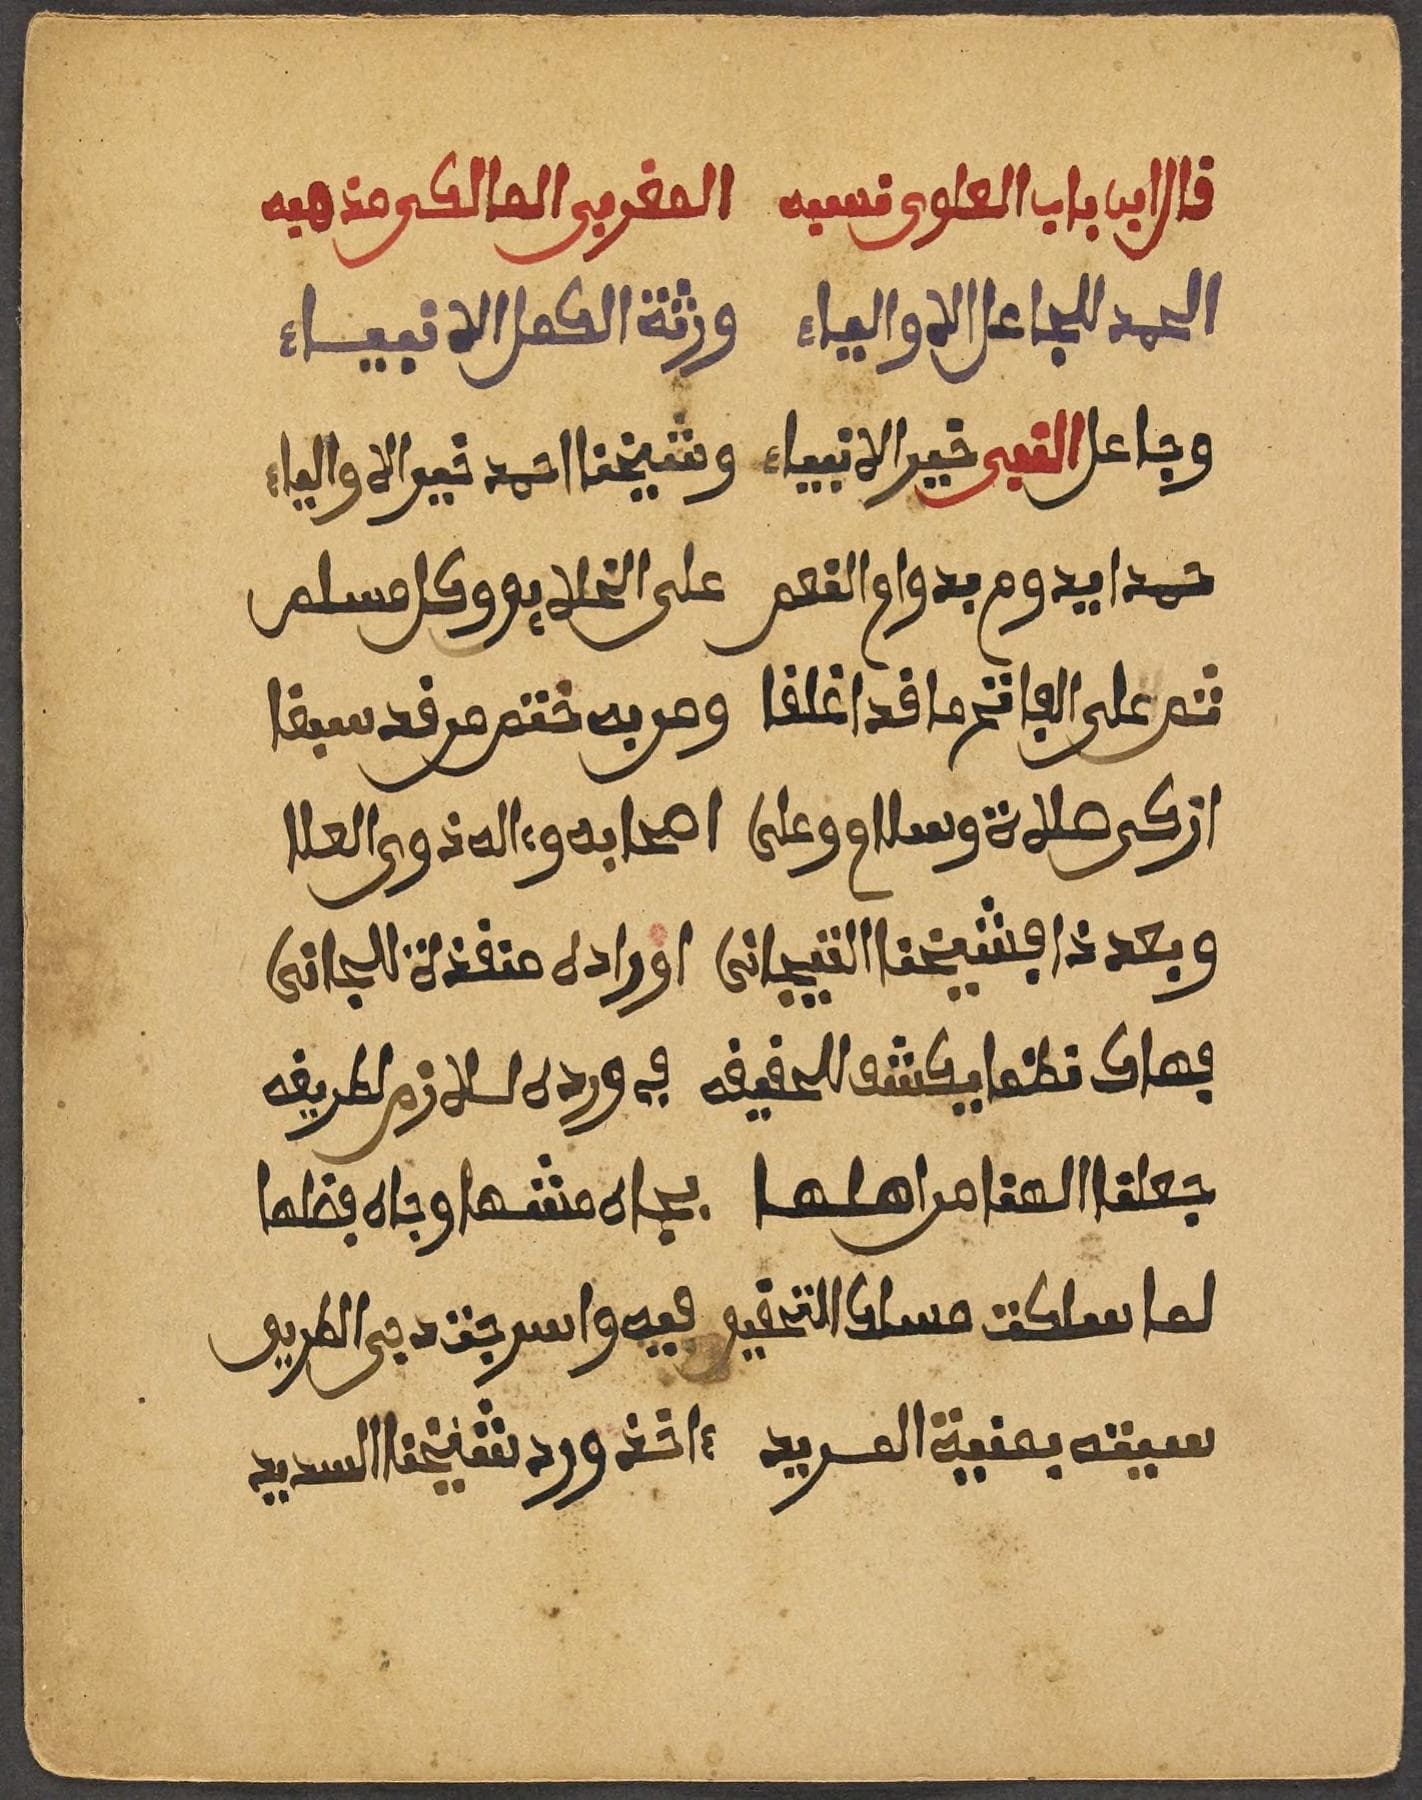 قال ابن باب العلوي نسبه المغربي المالكي مذهبه
الحمد للجاعل الاولياء ورثة الكمل الانبياء
وجاعل النبي خير الانبياء وشيخنا احمد خير الاولياء
حمدا يدوم بدوام النعم على الخلائق وكل مسلم
ثم على الفاتح ما قد اغلقا ومن به ختم من قد سبقا
ازكى صلاة وسلام وعلى اصحابه وءاله ذوي العلا
وبعد ذا فشيخنا التيجاني اوراده منقذة للجاني
فهاك نظما يكشف الحقيقه في ورده اللازم لطريقه
جعلنا الهنا من اهلها بجاه منشها وجاه فضلها
لما سلكت مسلك التحقيق فيه واسرجت دجى الطريق
سميته بمنية المريد ءاخذ ورد شيخنا السديد